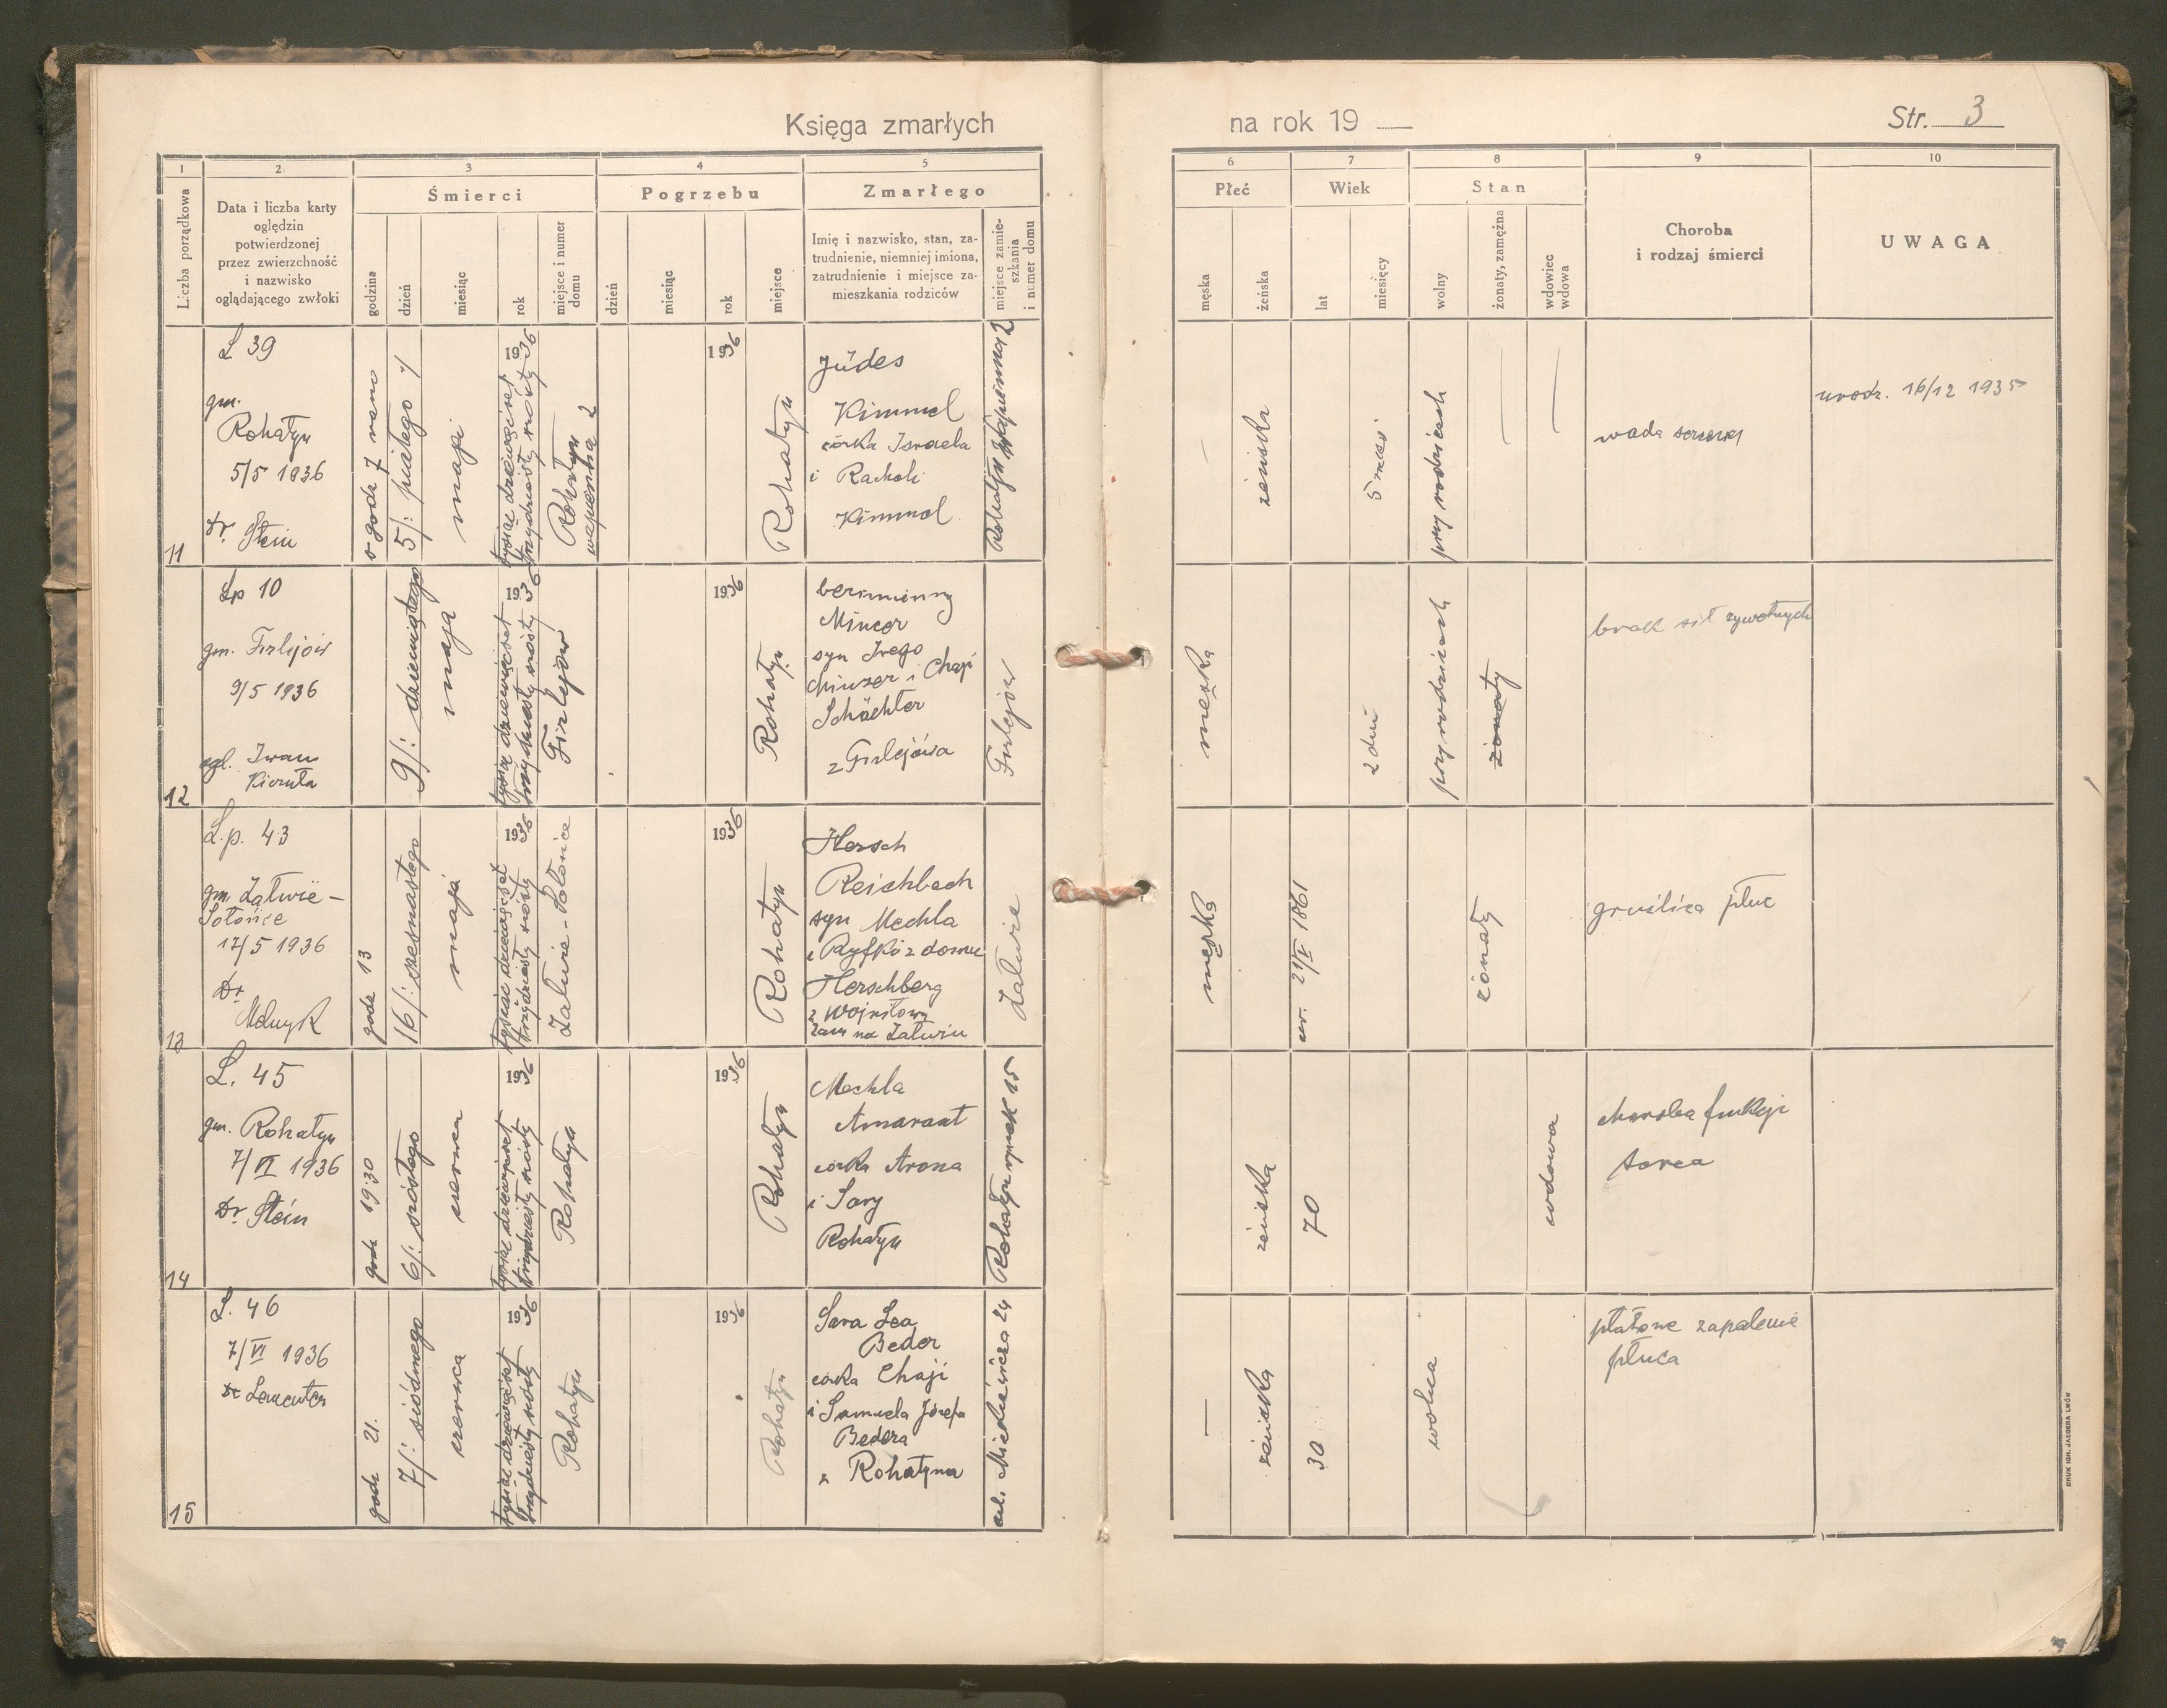 Księga zmarłych
na rok 19
Str. 3
1
2
3
4
5
6
7
8
9
10
Liczba porządkowa
Data i liczba karty
oględzin
potwierdzonej
przez zwierzchność
i nazwisko
oglądającego zwłoki
Śmierci
godzina
dzień
miesiąc
rok
miejsce i numer
domu
Pogrzebu
dzień
miesiąc
rok
miejsce
Zmarłego
Imię i nazwisko, stan, za-
trudnienie, niemniej imiona,
zatrudnienie i miejsce za-
mieszkania rodziców
miejsce zamie-
szkania
i numer domu
Płeć
męska
żeńska
Wiek
lat
miesięcy
Stan
wolny
żonaty, zamężna
wdowiec
wdowa
Choroba
i rodzaj śmierci
UWAGA
11
L 39
gm.
Rohatyn
5/5 1936
Dr. Stein
o godz 7 rano
5/: piątego
maja
1936
tysiąc dziewięćset
trzydziesty szósty
Rohatyn
wapienna 2
1936
Rohatyn
Jüdes
Kimmel
córka Israela
i Racheli
Kimmel
Rohatyn
2
żeńska
5 mies
przy rodzicach
wada serca
urodz. 16/12 1935
12
Lp 10
gm. Firlejów
9/5 1936
ogl. Iwan
9/: dziewiątego
maja
1936
tysiąc dziewięćset
trzydziesty szósty
Firlejów
1936
Rohatyn
bezimienny
Mincer
syn
i Chaji
Schächter
z Firlejówa
Firlejów
męska
2 dni
przy rodzicach
żonaty
brak sił żywotnych
13
L.p. 43
gm. Załuże -
17/5 1936
Dr
Melnyk
godz 13
16/: szesnastego
maja
1936
tysiąc dziewięćset
trzydziesty szósty
1936
Rohatyn
Hersch
Reichbach
syn Mechla
i Ryfki z domu
Herschberg
męska
ur. 21/V 1861
żonaty
gruźlica płuc
14
L. 45
gm. Rohatyn
7/VI 1936
Dr Stein
godz 19:30
6/: szóstego
czerwca
1936
tysiąc dziewięćset
trzydziesty szósty
Rohatyn
1936
Rohatyn
Mechla
Amarant
córka Arona
i Sary
Rohatyn
Rohatyn rynek 15
żeńska
70
wdowa
choroba funkcji
serca
15
L. 46
7/VI 1936
Dr
godz 21.
7/: siódmego
czerwca
1936
tysiąc dziewięćset
trzydziesty szósty
Rohatyn
1936
Rohatyn
Sara Lea
Beder
córka Chaji
i Samuela Józefa
Bedera
z Rohatyna
ul. Mickiewicza 24
żeńska
30
wolna
płatowe zapalenie
płuca
DRUK IGN. JAEGERA LWÓW